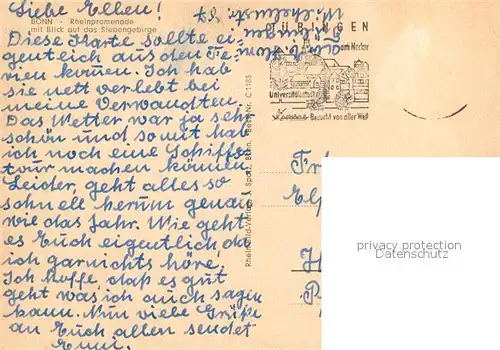 Liebe Ellen!
BONN - Rheinpromenade
mit Blick auf das Siebengebirge
Diese Karte sollte ei-
gentlich aus den Fe-
rien komen. Ich hab
sie nett verlebt bei
meine Verwandten.
Das Wetter war ja sehr
schön und somit hab
ich noch eine Schiffs-
tour machen können.
Leider, geht alles so
schnell herum genau
wie das Jahr. Wie geht
es Euch eigentlich da
ich garnichts höre,
Ich hoffe, daß es gut
geht was ich auch sagen
kann. Nun viele Grüße
an Euch allen sendet
Emi.
TÜBINGEN
am Neckar
Universitätsstadt
Besucht von aller Welt
Rheinbild-Verlag
Spatz, Bonn
Nr. C 1183
privacy protection
Datenschutz